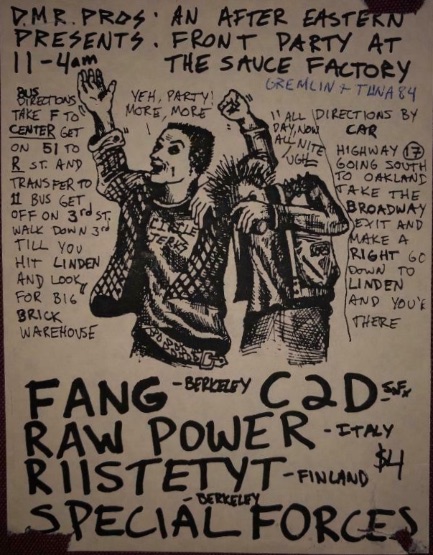 D.M.R. PROS: AN AFTER EASTERN
PRESENTS. FRONT PARTY AT
11-4am THE SAUCE FACTORY
GREMLIN + TUNA 84
BUS
DIRECTIONS
TAKE F TO
CENTER GET
ON 51 TO
R ST. AND
TRANSFER TO
11 BUS GET
OFF ON 3rd ST.
WALK DOWN 3rd
TILL YOU
HIT LINDEN
AND LOOK
FOR BIG
BRICK
WAREHOUSE
YEH, PARTY!
MORE, MORE
"ALL
DAY, NOW
ALL NITE
UGH"
CIRCLE
JERKS
DIRECTIONS BY
CAR
HIGHWAY 17
GOING SOUTH
TO OAKLAND
TAKE THE
BROADWAY
EXIT AND
MAKE A
RIGHT GO
DOWN TO
LINDEN
AND YOU'E
THERE
FANG - BERKELEY C2D - S.F.
RAW POWER - ITALY
RIISTETYT - FINLAND $4
- BERKELEY
SPECIAL FORCES